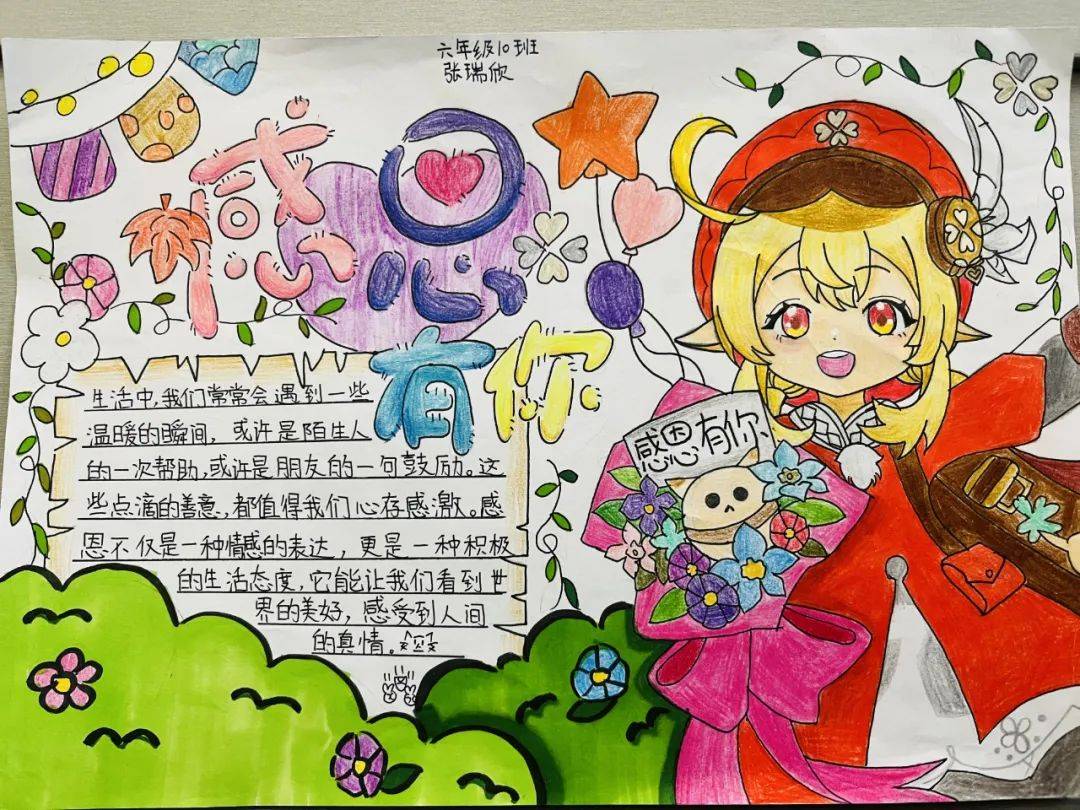 六年级10班
张瑞欣
感恩
有你
感恩有你
生活中,我们常常会遇到一些
温暖的瞬间，或许是陌生人
的一次帮助,或许是朋友的一句鼓励。这
些点滴的善意,都值得我们心存感激。感
恩不仅是一种情感的表达，更是一种积极
的生活态度,它能让我们看到世
界的美好，感受到人间
的真情。